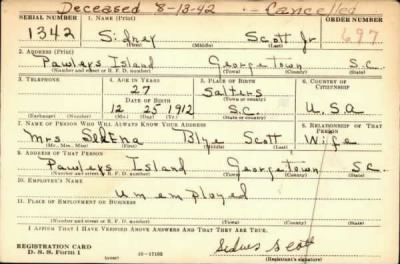 Deceased 8-13-42 - Cancelled
SERIAL NUMBER 1. NAME (Print) ORDER NUMBER
1342 Sidney Scott Jr 697
(First) (Middle) (Last)
2. ADDRESS (Print)
Pawleys Island Georgetown S.C.
(Number and street or R. F. D. number) (Town) (County) (State)
3. TELEPHONE 4. AGE IN YEARS 5. PLACE OF BIRTH 6. COUNTRY OF CITIZENSHIP
27 Salters
DATE OF BIRTH (Town or county)
12 25 1912 S.C. U.S.A
(Exchange) (Number) (Mo.) (Day) (Yr.) (State or country)
7. NAME OF PERSON WHO WILL ALWAYS KNOW YOUR ADDRESS 8. RELATIONSHIP OF THAT PERSON
Mrs Blye Scott Wife
(Mr., Mrs., Miss) (First) (Middle) (Last)
9. ADDRESS OF THAT PERSON
Pawleys Island Georgetown S.C.
(Number and street or R. F. D. number) (Town) (County) (State)
10. EMPLOYER'S NAME
Umemployed
11. PLACE OF EMPLOYMENT OR BUSINESS
(Number and street or R. F. D. number) (Town) (County) (State)
I AFFIRM THAT I HAVE VERIFIED ABOVE ANSWERS AND THAT THEY ARE TRUE.
REGISTRATION CARD
D. S. S. Form 1 16-17105 Scott
(Registrant's signature)